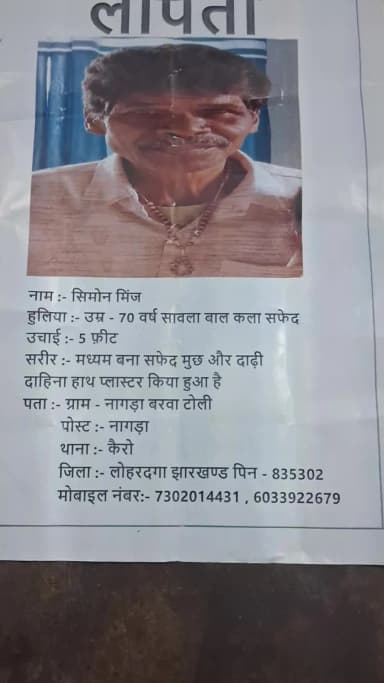 लापता
नाम :- सिमोन मिंज
हुलिया :- उम्र - 70 वर्ष सावला बाल कला सफेद
उचाई :- 5 फ़ीट
सरीर :- मध्यम बना सफेद मुछ और दाढ़ी
दाहिना हाथ प्लास्टर किया हुआ है
पता :- ग्राम - नागड़ा बरवा टोली
पोस्ट :- नागड़ा
थाना :- कैरो
जिला :- लोहरदगा झारखण्ड पिन - 835302
मोबाइल नंबर:- 7302014431 , 6033922679